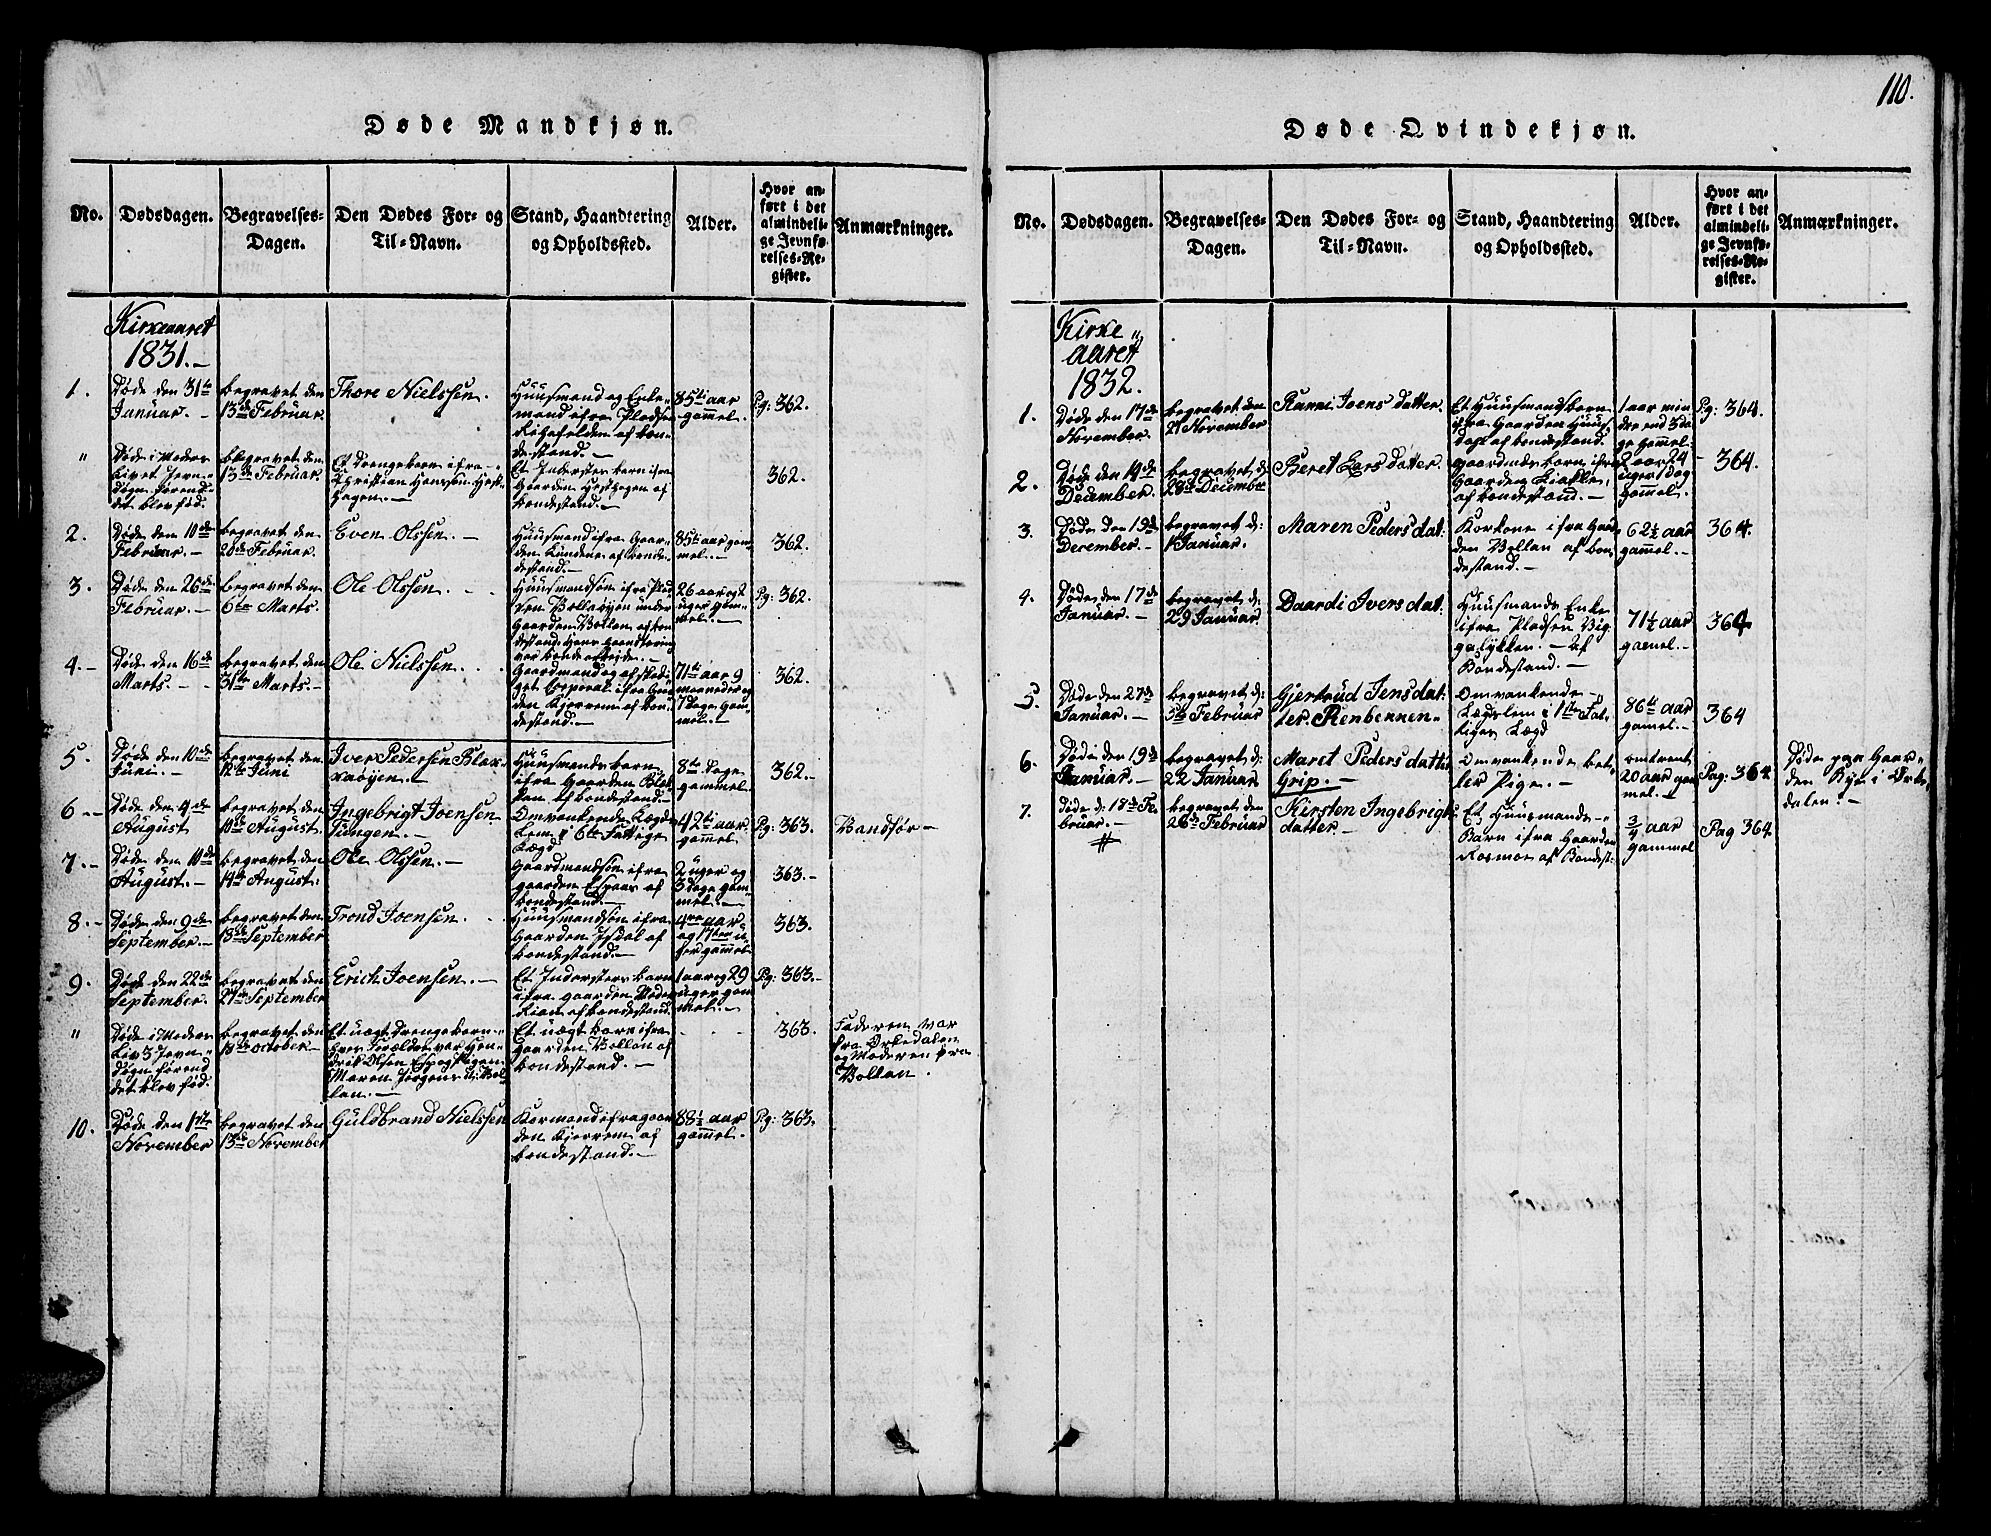 110.
Døde Mandkjøn.
No.
Dødsdagen.
Begravelses-
Dagen.
Den Dødes For- og
Til-Navn.
Stand, Haandtering
og Opholdssted.
Alder.
Hvor an-
ført i det
almindeli-
ge Jevnfø-
relses-Re-
gister.
Anmærkninger.
Kirkeaaret
1831.-
1.
Døde den 31te
Januar. -
begravet den
13de Februar
Thore Nielssen.
Huusmand og Enke-
mand ifra Pladsen
af bon-
destand. -
85ti aar
gammel.
Pg: 362.
"
Døde i Moders
Livet
det blev fød.
begravet den
13de Februar
Et Drengebarn ifra
Christian Hansen Hest-
hagen. -
Et Inderster barn ifra
Gaarden Hesthagen af
bondestand. -
362.
2.
Døde den 10de
Februar. -
begravet den
20de Februar.
Even Olssen. -
Huusmand ifra Gaar-
den af bonde-
destand. -
85ti aar gam-
mel. -
362.
3.
Døde den 26de
Februar. -
begravet den
6te Marts.
Ole Olssen.
Huusmandsøn ifra Plad-
sen under
Gaarden Bollan af bon-
destand
var bonde arbeide. -
26 aar og 2
uger gam-
mel. -
Pg: 362.
4. -
Døde den 16de
Marts. -
begravet den
31te Marts. -
Ole Nielssen.
Gaardmand og afskedi-
get Corporal ifra Gaar-
den Kjerrem af bon-
destand. -
71ti aar 9
maaneder og
7 Dage gam-
mel. -
362.
5.
Døde den 10de
Juni. -
begravet den
12te Juni
Iver Pedersen Blok-
kaøyen. -
Huusmands barn
ifra Gaarden Blok-
ken af bondestand. -
8te Dage
gammel
362. -
6. -
Døde den 4de
August
begravet den
10de August.
Ingebrigt Joensen
Tungen. -
Omvankende Lægds
Lem i 6te Fattige
Lægd
42ti aar
gammel
Pg: 363.
Vandsør -
7. -
Døde den 10de
August. -
begravet den
14de August.
Ole Olssen. -
Gaardmandsøn ifra
gaarden Espaas af
bondestand. -
2 uger og
3 dage gam-
mel. -
363. -
8. -
Døde den 9de
September. -
begravet den
18de September
Trond Joensen.
Huusmandsøn ifra
Gaarden Isdal af
bondestand. -
4re aar
og 17ten u-
ger gammel
363.
9.
Døde den 22de
September.
begravet den
27de September
Erich Joensen. -
Et Indersters barn
ifra gaarden
af bondestand.
1 aar og 29
uger gam-
mel. -
Pg: 363. -
"
Døde i Moders
Liv 3
det blev fød.
begravet den
18de October -
Et uægt Drengebarn
hvis Forældre var Hen-
drik Olsen
Maren Jørgens d: Bol-
lan. -
Et uægt barn ifra
Gaarden Bollan af
bondestand. -
363.
Faderen var
fra Ørkedalen
og Moderen fra
Bollan.
10.
Døde den 1ste
November
begravet den
13de November
Guldbrand Nielssen
Kormand ifra gaar-
den Kjerrem af
bondestand. -
88½ aar
gammel.
Pg: 363.
Døde Qvindekjøn.
No.
Dødsdagen.
Begravelses-
Dagen.
Den Dødes For- og
Til-Navn.
Stand, Haandtering
og Opholdssted.
Alder.
Hvor an-
ført i det
almindeli-
ge Jevnfø-
relses-Re-
gister.
Anmærkninger.
Kirke„
aaret
1832.
1.
Døde den 17de
November.
begravet den
21 November
Ranni Joens datter.
Et Huusmandsbarn
ifra Gaarden Huus-
af bondestand.
1 aar min-
dre end 3 da-
ge gammel.
Pg: 364.
2.
Døde den 14de
December.
begravet d:
28de December
Beret Lars datter.
gaardmds barn ifra
Gaarden
af bondestand. -
2 aar 24
uger 1 dag
gammel.
364.
3.
Døde den 19de
December. -
begravet d:
1 Januar.
Maren Peders dat:
Korkone ifra Gaar-
den Bollan af bon-
destand. -
62½ aar
gammel. -
364.
4.
Døde den 17de
Januar. -
begravet d:
29 Januar.
Daardi Ivers dat.
Huusmands Enke
ifra Pladsen Big-
galykken. - af
Bondestand. -
71½ aar
gamel. -
364.
5.
Døde den 27de
Januar. -
begravet d:
5te Februar
Gjertrud Jens dat-
ter. Renbennen-
Omvankende -
Lægdslem i 1ste Fat-
tiges Lægd
86ti aar
gamel.
364
6.
Døde den 19de
Januar. -
begravet d:
22 Januar
Maret Peders datter
Grip. -
Omvankende bet-
ler Pige. -
omtrent
20 aar gam-
mel. -
Pag: 364.
Døde paa Gaar-
den Rye i Ørke-
dalen. -
7.
døde d: 18de Fe-
bruar. -
begravet den
26de Februar
Kirsten Ingebrigts
datter -
Et Huusmands -
Barn ifra Gaarden
Rosmoe af Bondest:
¾ aar
gammel
Pag 364.